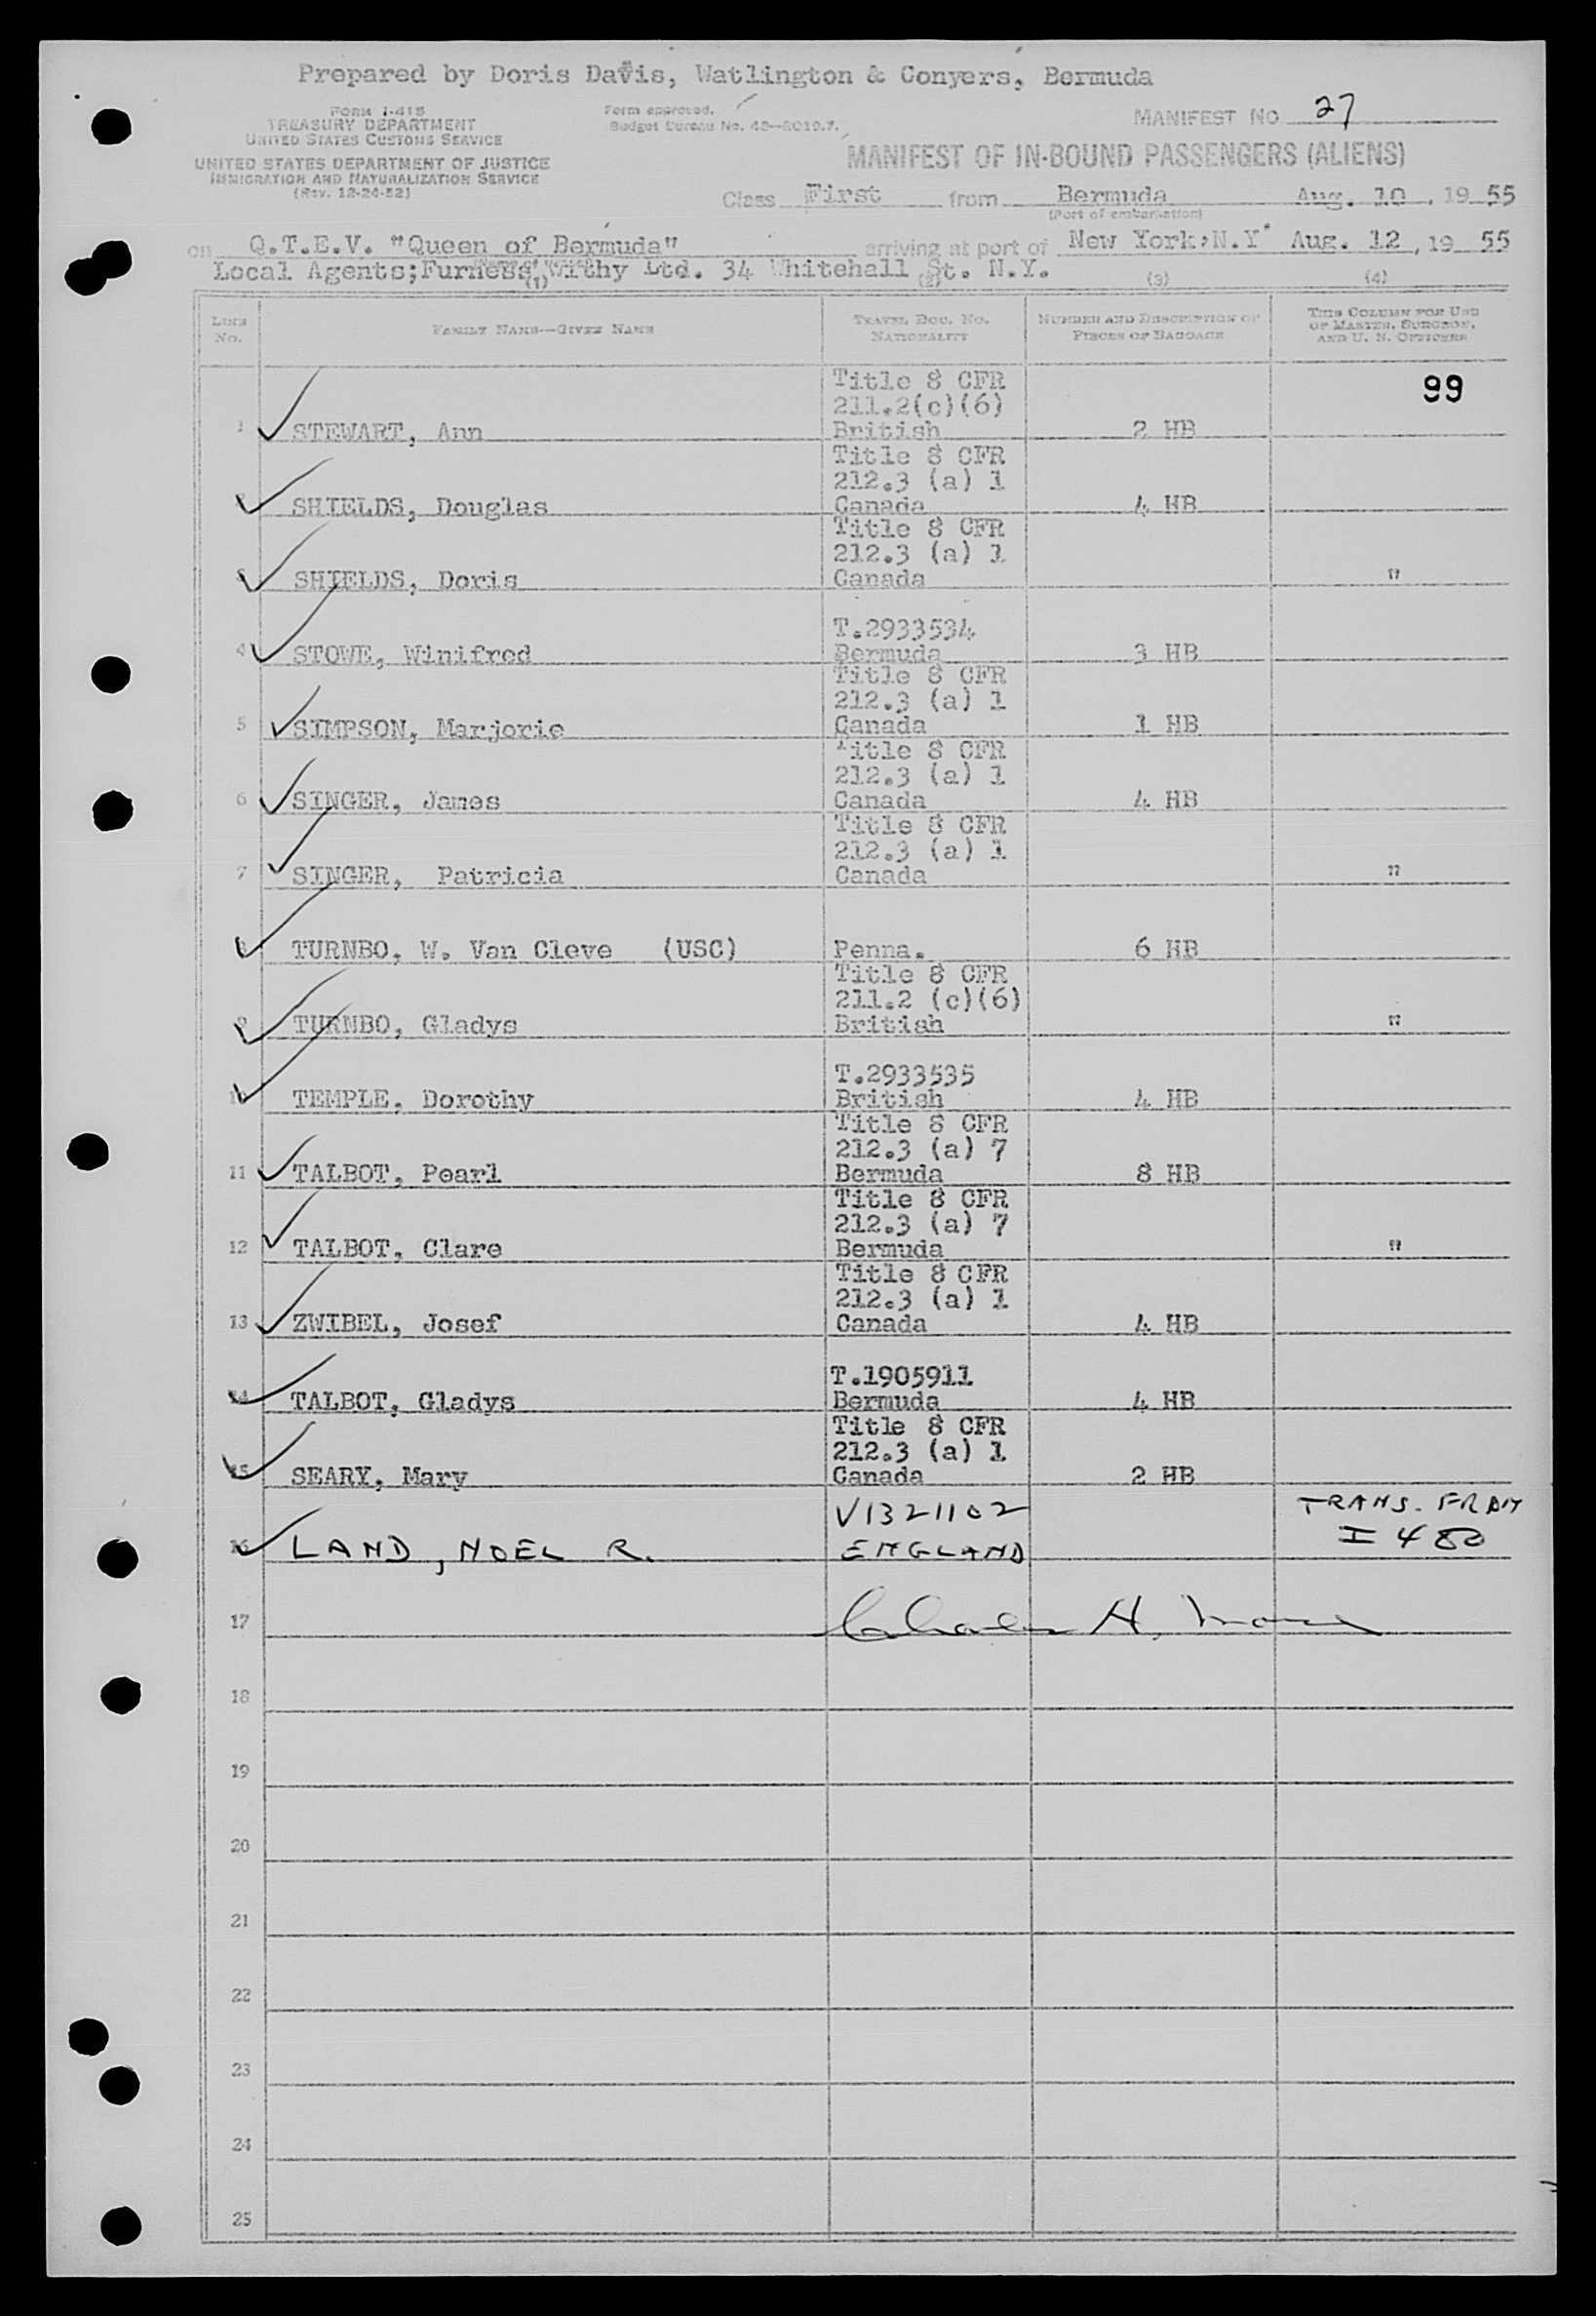 Prepared by Doris Davis, Watlington & Conyers, Bermuda
FORM I-415
TREASURY DEPARTMENT
UNITED STATES CUSTOMS SERVICE
UNITED STATES DEPARTMENT OF JUSTICE
IMMIGRATION AND NATURALIZATION SERVICE
(Rev. 12-24-52)
Form approved.
Budget Bureau No. 43-R019.7.
MANIFEST NO 27
MANIFEST OF IN-BOUND PASSENGERS (ALIENS)
Class First from Bermuda Aug. 10, 1955
(Port of embarkation)
on Q.T.E.V. "Queen of Bermuda" arriving at port of New York, N.Y. Aug. 12, 1955
Local Agents; Furness Withy Ltd. 34 Whitehall St. N.Y.
(1) (2) (3) (4)
LINE No. FAMILY NAME—GIVEN NAME TRAVEL DOC. NO. NATIONALITY NUMBER AND DESCRIPTION OF PIECES OF BAGGAGE THIS COLUMN FOR USE OF MASTER, SURGEON, AND U. S. OFFICERS
99
Title 8 CFR
211.2(c)(6)
1 STEWART, Ann British 2 HB
Title 8 CFR
212.3 (a) 1
SHIELDS, Douglas Canada 4 HB
Title 8 CFR
212.3 (a) 1
SHIELDS, Doris Canada "
T.2933534
4 STOWE, Winifred Bermuda 3 HB
Title 8 CFR
212.3 (a) 1
5 SIMPSON, Marjorie Canada 1 HB
Title 8 CFR
212.3 (a) 1
6 SINGER, James Canada 4 HB
Title 8 CFR
212.3 (a) 1
7 SINGER, Patricia Canada "
8 TURNBO, W. Van Cleve (USC) Penna. 6 HB
Title 8 CFR
211.2 (c)(6)
9 TURNBO, Gladys British "
T.2933535
10 TEMPLE, Dorothy British 4 HB
Title 8 CFR
212.3 (a) 7
11 TALBOT, Pearl Bermuda 8 HB
Title 8 CFR
212.3 (a) 7
12 TALBOT, Clare Bermuda "
Title 8 CFR
212.3 (a) 1
13 ZWIBEL, Josef Canada 4 HB
T.1905911
14 TALBOT, Gladys Bermuda 4 HB
Title 8 CFR
212.3 (a) 1
15 SEARY, Mary Canada 2 HB
V1321102 TRANS. FROM
16 LAND, NOEL R. ENGLAND I 480
17 Charles H.
18
19
20
21
22
23
24
25